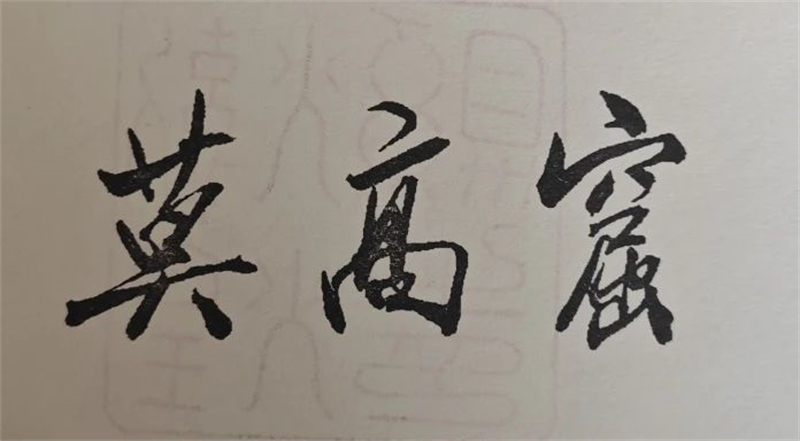 莫高窟